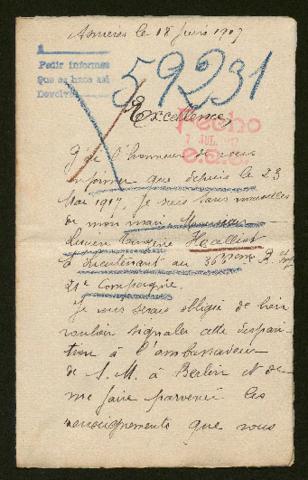 Asnières le 18 Juin 1917
1
Pedir informes
Que se hace así
Devolver
59231
Excellence,
Hecho
7 JUL. 1917
J'ai l'honneur de vous
informer que depuis le 23
Mai 1917, je suis sans nouvelles
de mon mari Monsieur
Lucien Halliot
S/Lieutenant au 36ème R.
21e Compagnie
Je vous serais obligée de bien
vouloir signaler cette dispari-
tion à l'ambassadeur
de S. M. à Berlin et de
me faire parvenir les
renseignements que vous